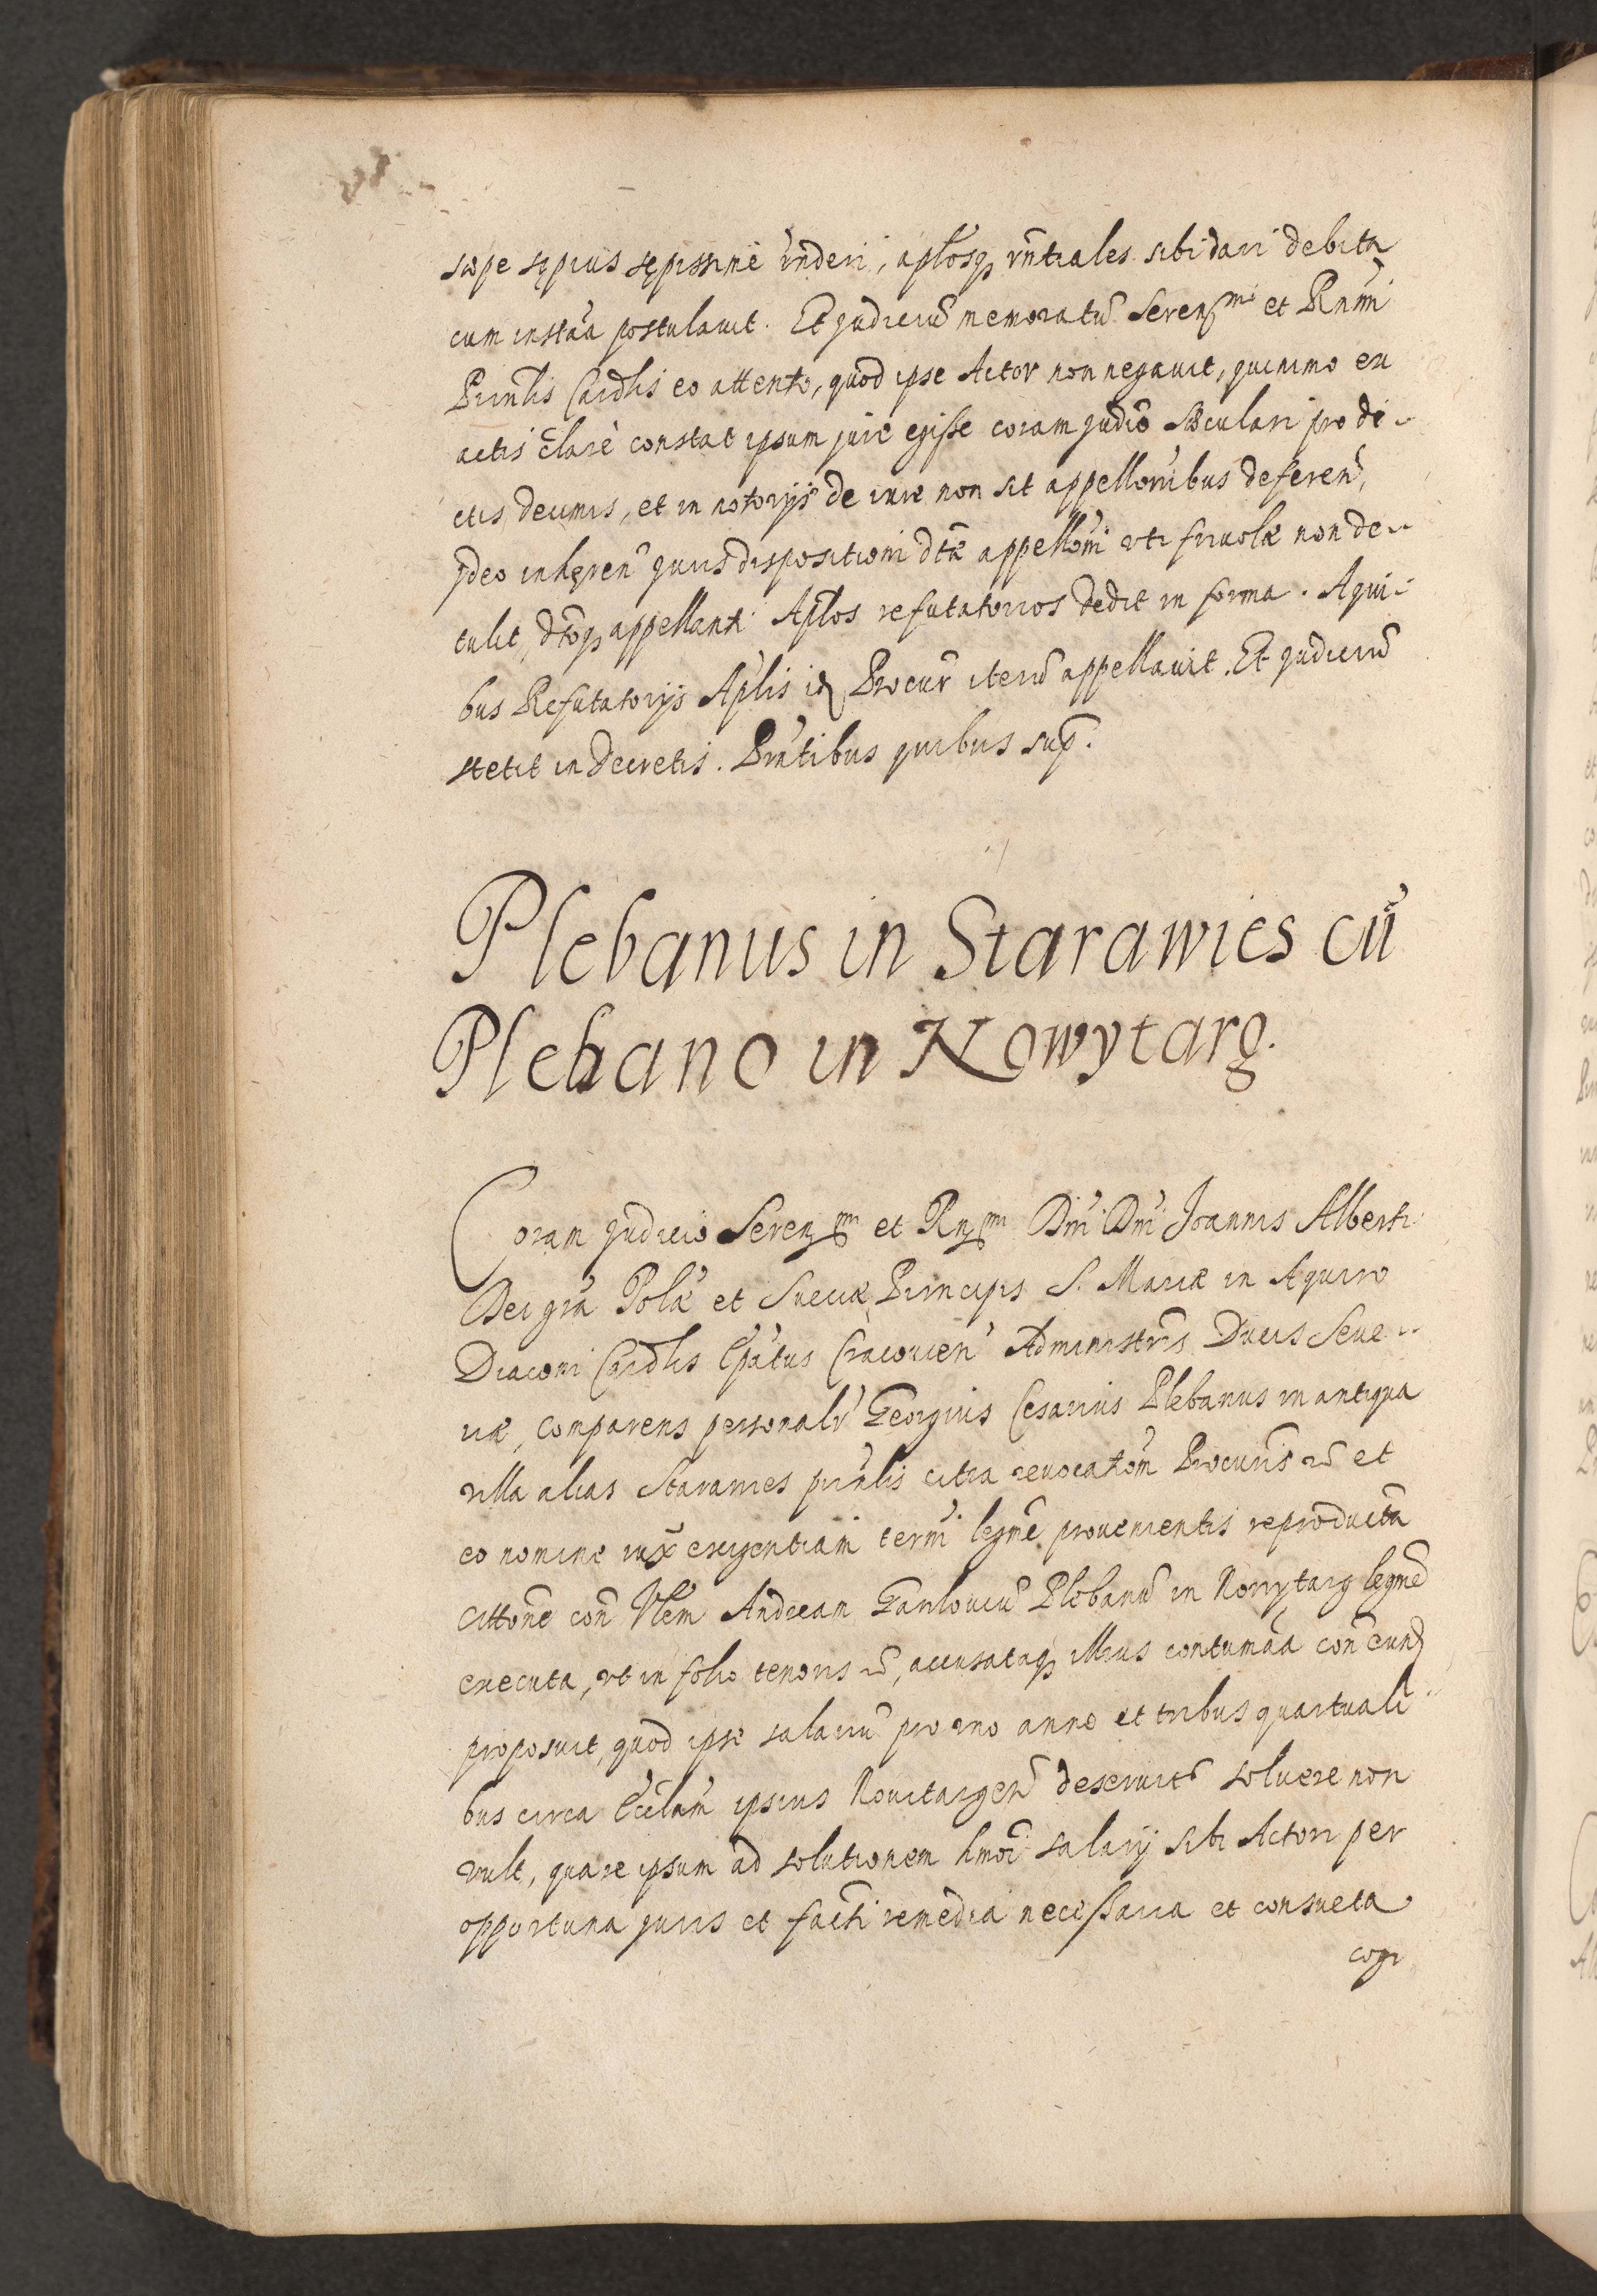 sæpe sępius sępissime īnderi, aplōsq3 rn̄tiales sibi dari debita
cum instā̄a postulavit. Et Judiciū memoratū Serenssmi et Rn̄mi
Prin̄lis Cardlis eo attento, quod ipse Actor non negavit, quinimo ex
actis clarè constat ipsum jure egisse coram Judiō sæculari pro de-
ctis decimis, et in notorijs de iure non sit appellonibus deferen̄,
Ideo inhęren̄ Juris dispositioni dtæ appelloni uti frivolæ non de-
tulit, dtoq3 appellanti Aplos refutatorios dedit in forma. A qui-
bus Refutatorijs Aplis id Procur̄ iterū appellavit. Et Judiciū
stetit in decretis. Prn̄tibus quibus sup̄.
Plebanus in Starawies cū
Plebano in Nowytarg.
Coram Judicio Serenssmi et Rnssmi Dn̄i Dn̄i Joannis Alberti
Dei grā Polæ et Sueciæ Principis S. Mariæ in Aquiro
Diaconi Cardlis Ep̄atus Cracovien̄ Administrīs Ducis Seve-
riæ, comparens personalr̄ Georgius Cesarius Plebanus in antiqua
villa alias Starawies prin̄lis citra revocatōm Procuris rō et
eo nomine iux̄ exigentiam termī legm̄e provenientis reproducta
cittōne con̄ Vlem Andream Gawlovicū Plebanū in Nowytarg legm̄e
executa, ut in folio tenoris rō, accusataq3 illius contumā̄a con̄ eund
proposuit, quod ipse salariū pro uno anno et tribus quartuali-
bus circa Ecclam ipsius Novitargen̄ deservitū solvere non
vult, quare ipsum ad solutionem hmōi salarij sibi Actori per
opportuna juris et facti remedia necessaria et consueta
cogi